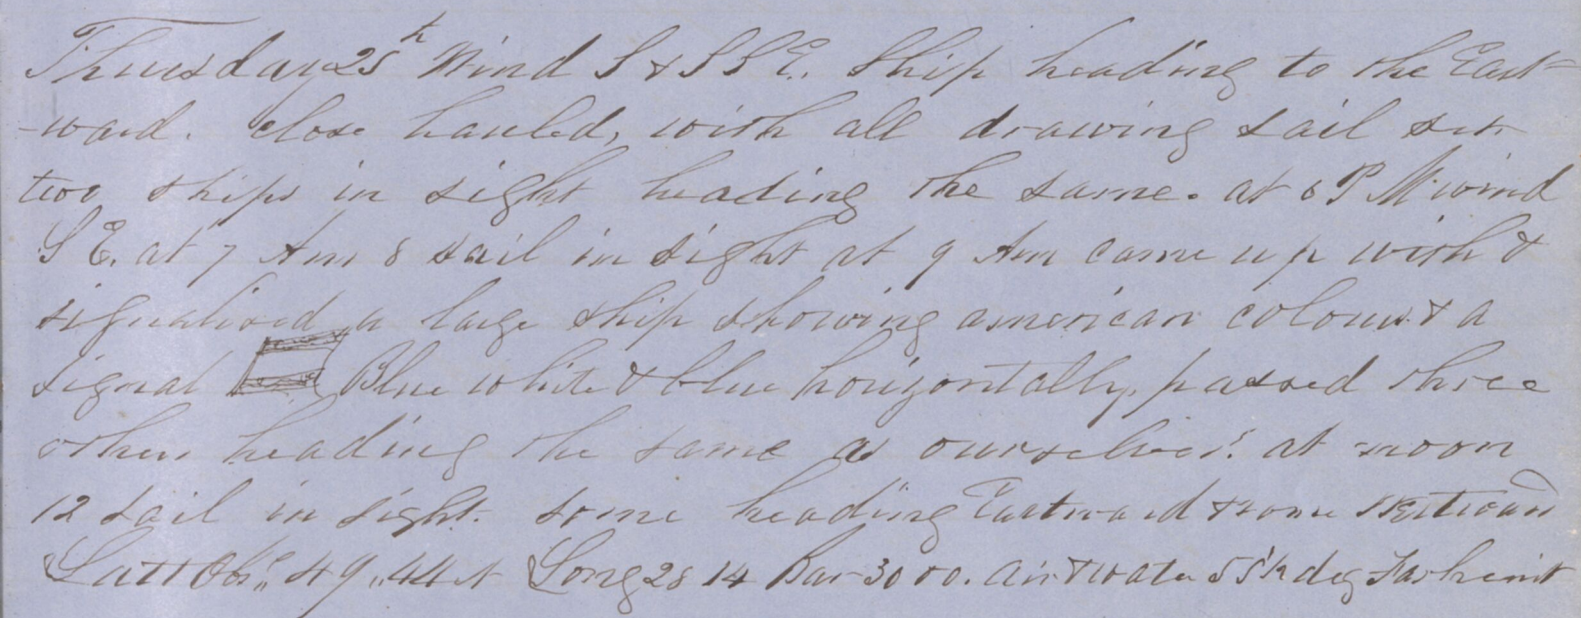 Thursday 25th Wind S & S S E. Ship heading to the East
-ward. close hauled, with all drawing sail set
two ships in sight heading the same. at 8 P M wind
S E. at 7 Am 8 sail in sight at 9 Am came up with &
signalised a large ship showing american colours & a
signal Blue white & blue horizontally, passed three
others heading the same as ourselves. at noon
12 sail in sight. some heading Eastward & some Westward
Latt Obs. 49,, 44 N Long 28 14 Bar 30 00. air & water 55 ½ deg Farhenit